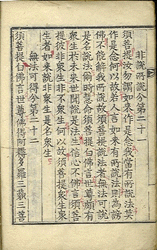 非說所說分第二十一
須菩提汝勿謂如來作是念我當有所說法莫
作是念何以故若人言如來有所說法即為謗
佛不能解我所說故須菩提說法者無法可說
是名說法爾時慧命須菩提白佛言世尊頗有
衆生於未來世聞說是法生信心不佛言須菩
提彼非衆生非不衆生何以故須菩提衆生衆
生者如來說非衆生是名衆生
無法可得分第二十二
須菩提白佛言世尊佛得阿耨多羅三藐三菩